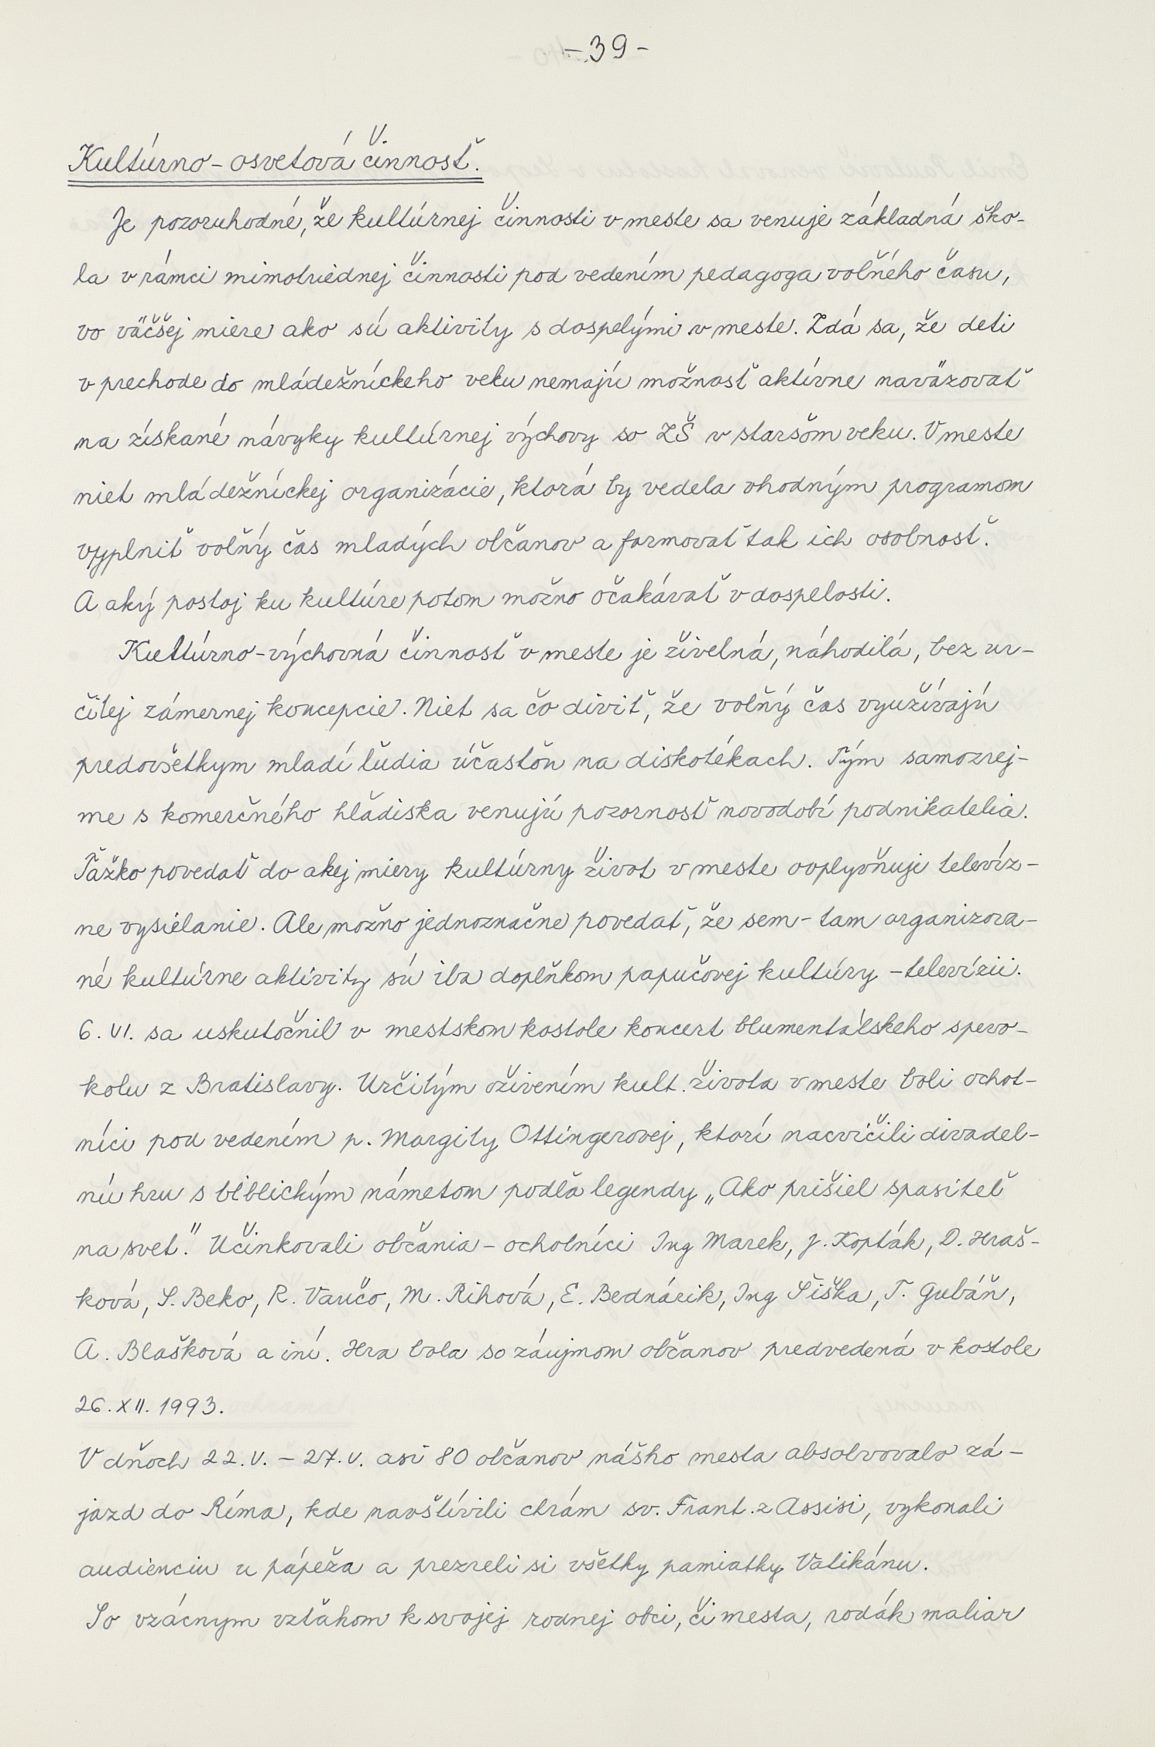 - 39 -
Kultúrno - osvetová činnosť.
Je pozoruhodné, že kultúrnej činnosti v meste sa venuje základná ško-
la v rámci mimotriednej činnosti pod vedením pedagoga voľného času,
vo väčšej miere ako sú aktivity s dospelými v meste. Zdá sa, že deti
v prechode do mládežníckeho veku nemajú možnosť aktívne naväzovať
na získané návyky kultúrnej výchovy so ZŠ v staršom veku. V meste
niet mládežníckej organizácie, ktorá by vedela vhodným programom
vyplniť voľný čas mladých občanov a formovať tak ich osobnosť.
A aký postoj ku kultúre potom možno očakávať v dospelosti.
Kultúrno - výchovná činnosť v meste je živelná, náhodilá, bez ur-
čitej zámernej koncepcie. Niet sa čo diviť, že voľný čas využívajú
predovšetkym mladí ľudia účasťou na diskotékach. Tým samozrej-
me s komerčného hľadiska venujú pozornosť novodobí podnikatelia.
Ťažko povedať do akej miery kultúrny život v meste ovplyvňuje televíz-
ne vysielanie. Ale možno jednoznačne povedať, že sem - tam organizova-
né kultúrne aktivity sú iba doplňkom papučovej kultúry - televízii.
6. VI. sa uskutočnil v mestskom kostole koncert blumentálskeho spevo-
kolu z Bratislavy. Určitým oživením kult. života v meste boli ochot-
níci pod vedením p. Margity Ottingerovej, ktorí nacvičili divadel-
nú hru s biblickým námetom podľa legendy „Ako prišiel spasiteľ
na svet." Účinkovali občania - ochotníci Ing Marek, J. Kopták, D. Hraš-
ková, S. Beko, R. Vančo, M. Rihová, E. Bednárik, Ing Šiška, T. Gubáň,
A. Blašková a iní. Hra bola so záujmom občanov predvedená v kostole
26. XII. 1993.
V dňoch 22. V. - 27. V. asi 80 občanov nášho mesta absolvovalo zá-
jazd do Ríma, kde navštívili chrám sv. Frant. z Assisi, vykonali
audienciu u pápeža a prezreli si všetky pamiatky Vatikánu.
So vzácnym vzťahom k svojej rodnej obci, či mesta, rodák maliar